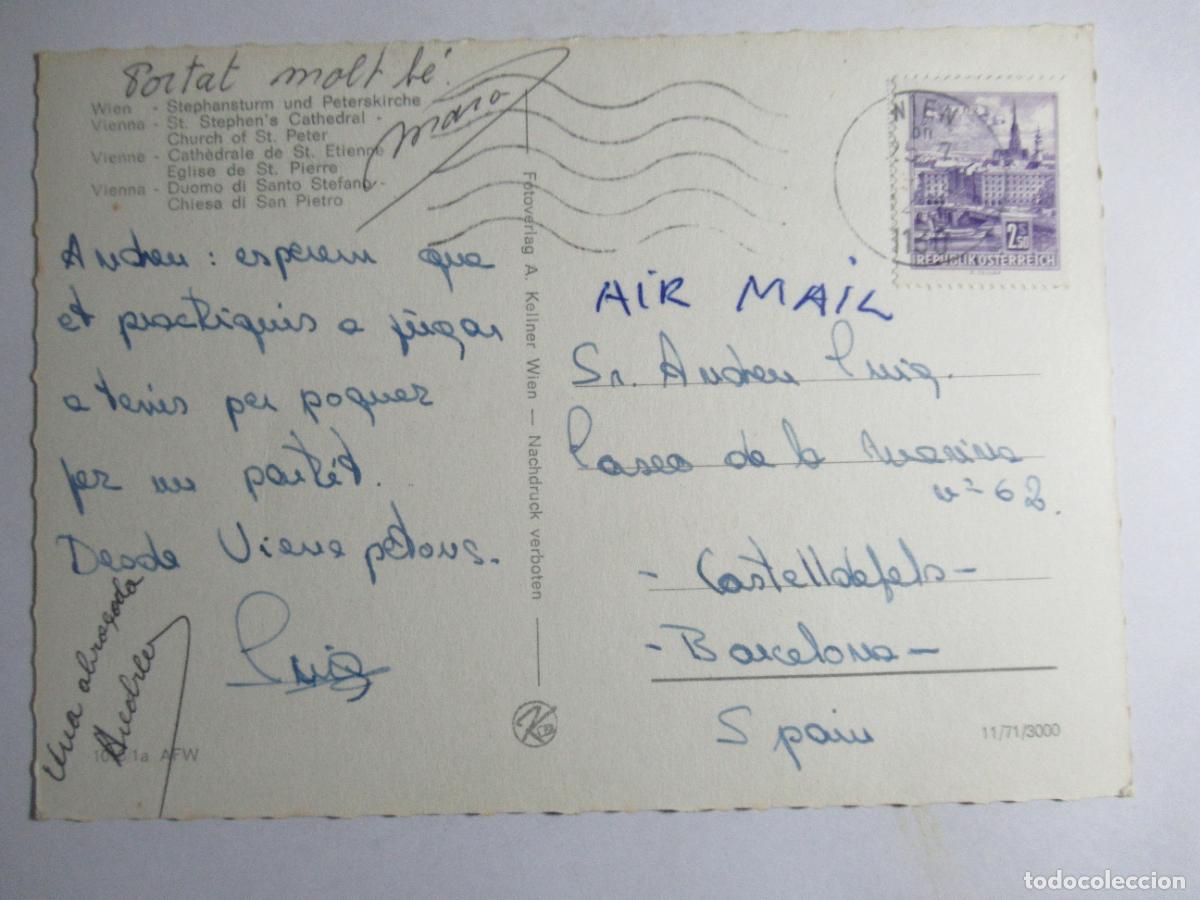 Portat molt bé.
Wien - Stephansturm und Peterskirche
Vienna - St. Stephen's Cathedral -
Church of St. Peter
Vienne - Cathèdrale de St. Etienne
Eglise de St. Pierre
Vienna - Duomo di Santo Stefano -
Chiesa di San Pietro
Andreu : esperem que
et practiquis a jugar
a tenis per poguer
fer un partit.
Desde Viena petons.
Puig
Una abraçada
Andreu
1a AFW
Fotoverlag A. Kellner Wien — Nachdruck verboten
WIEN
2.50
REPUBLIK ÖSTERREICH
AIR MAIL
Sr. Andreu Puig.
Paseo de la Marina
nº 62.
- Castelldefels -
- Barcelona -
Spain
11/71/3000
todocoleccion